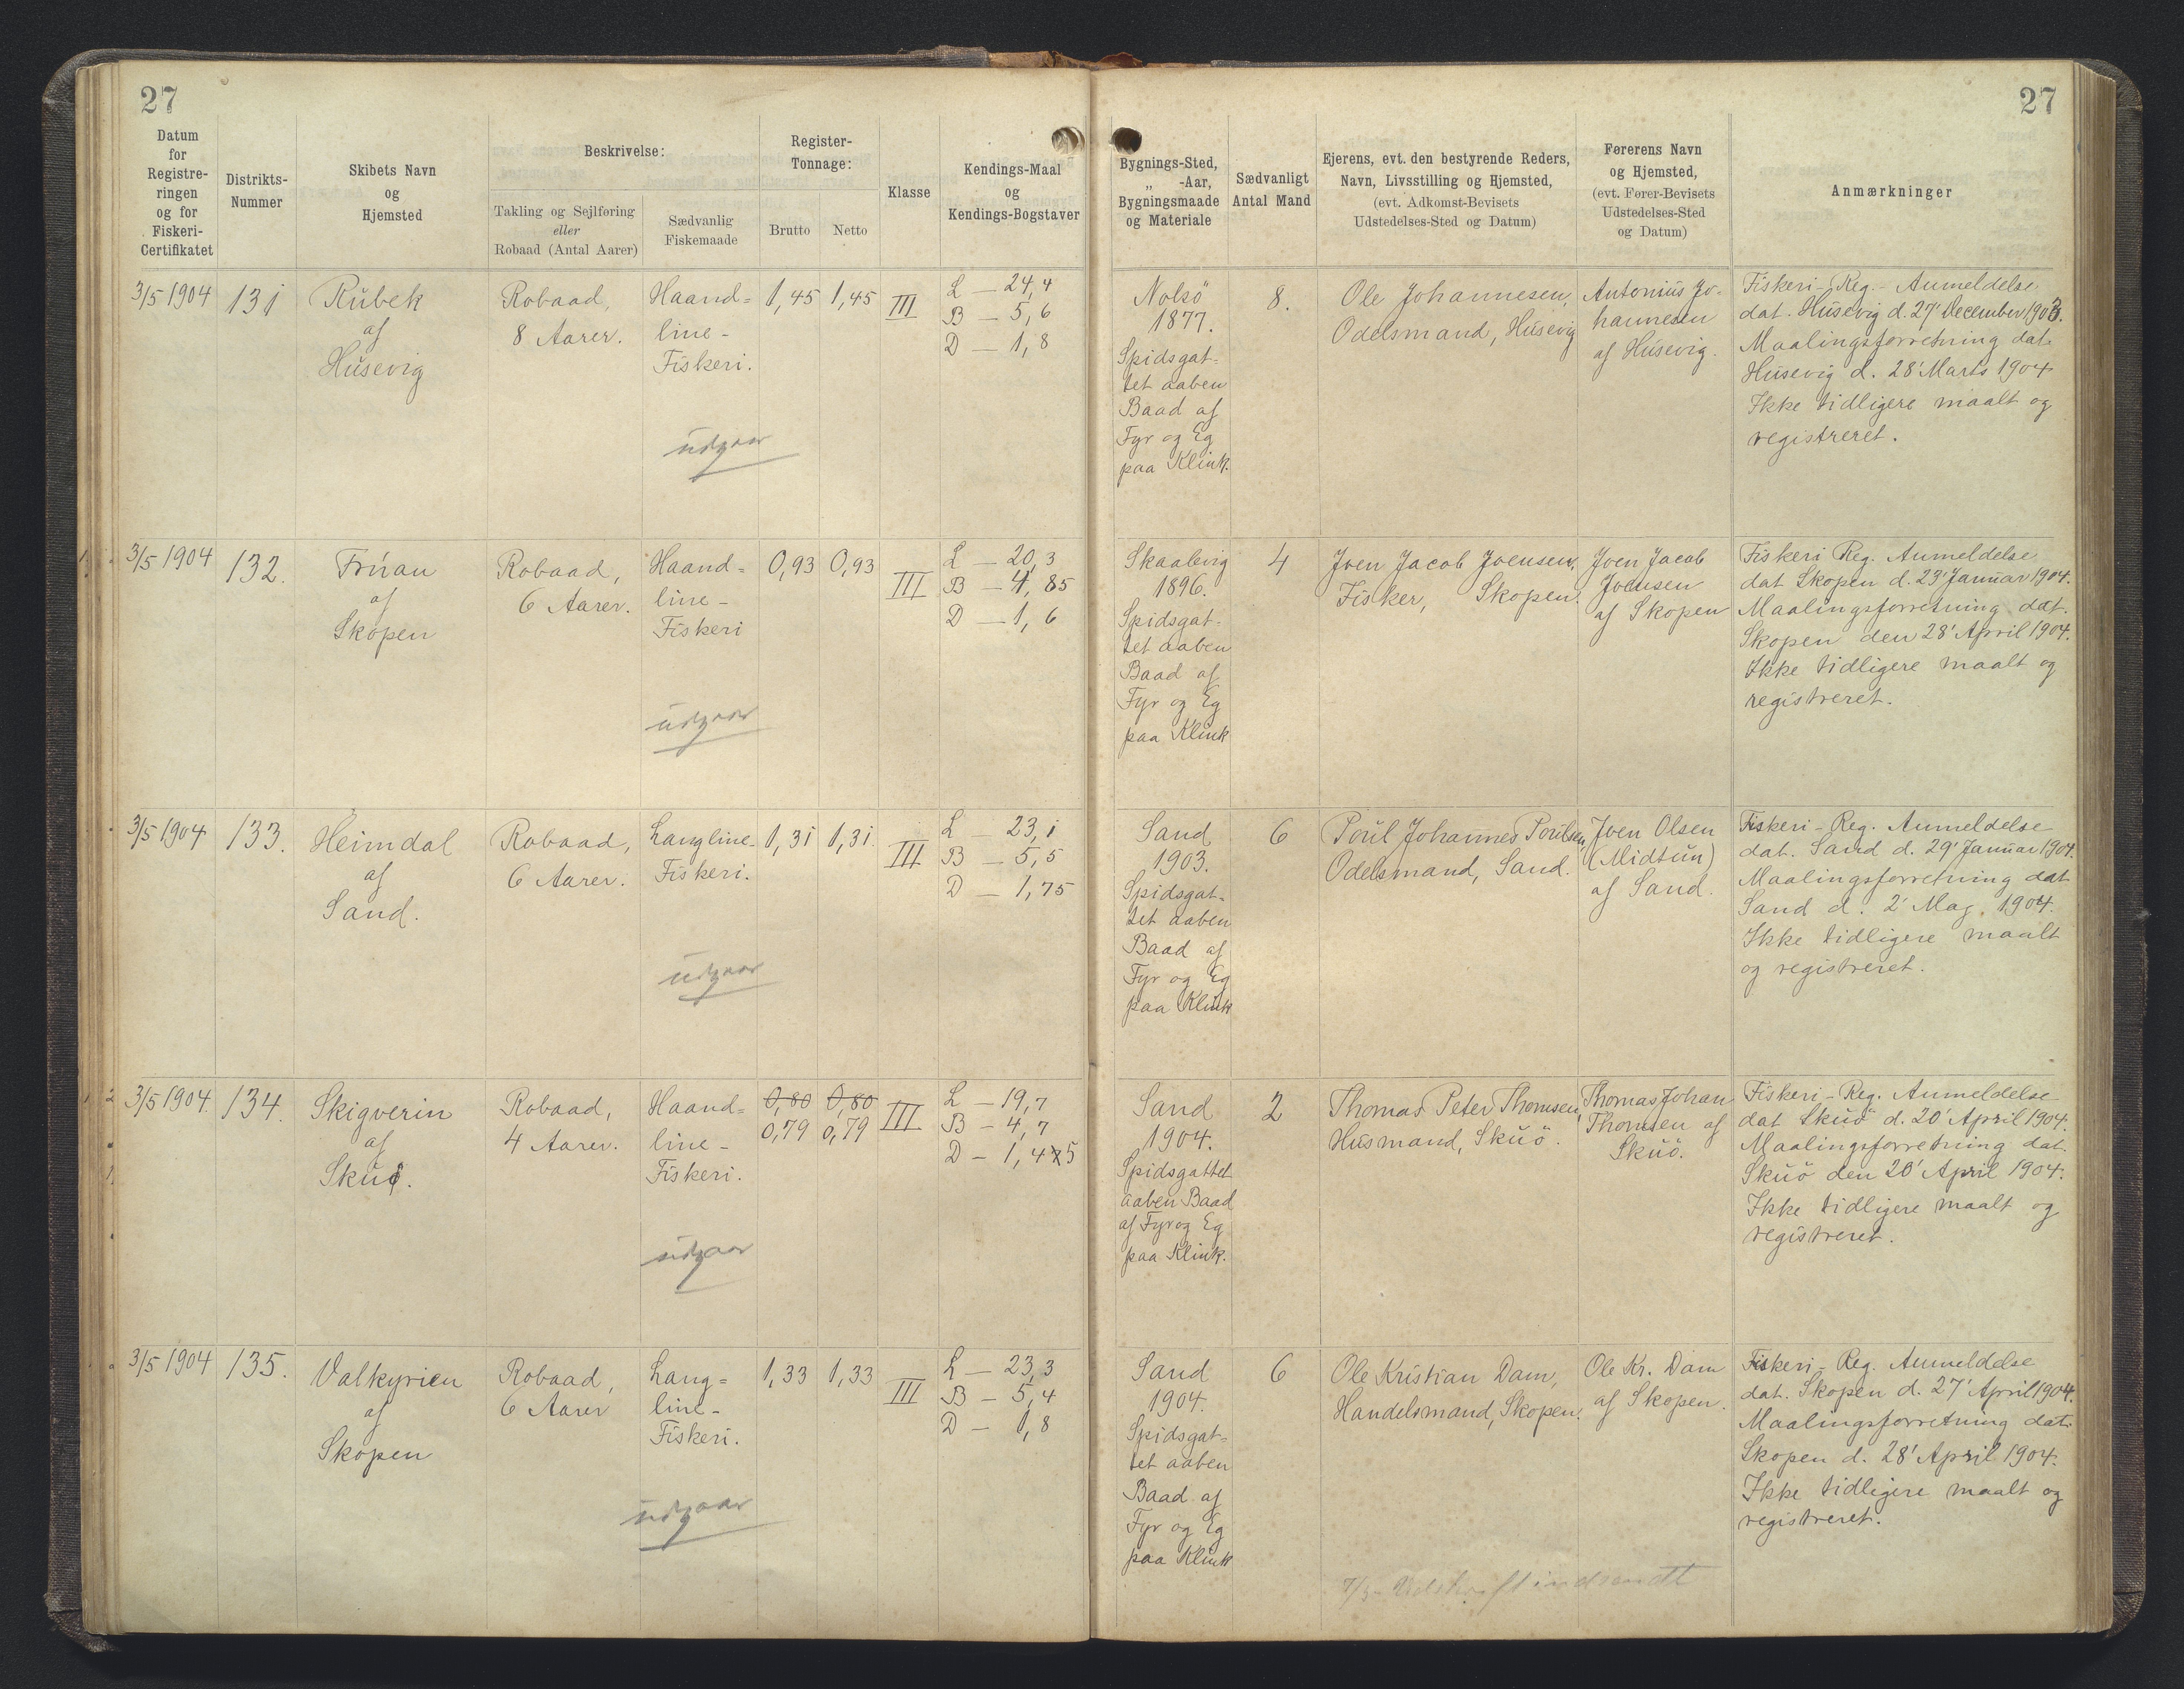 27
27
Datum
for
Registre-
ringen
og for
Fiskeri-
Certifikatet
Distrikts-
Nummer
Skibets Navn
og
Hjemsted
Beskrivelse:
Takling og Sejlføring
eller
Robaad (Antal Aarer)
Sædvanlig
Fiskemaade
Register-
Tonnage:
Brutto
Netto
Klasse
Kendings-Maal
og
Kendings-Bogstaver
Bygnings-Sted,
„ -Aar,
Bygningsmaade
og Materiale
Sædvanligt
Antal Mand
Ejerens, evt. den bestyrende Reders,
Navn, Livsstilling og Hjemsted,
(evt. Adkomst-Bevisets
Udstedelses-Sted og Datum)
Førerens Navn
og Hjemsted,
(evt. Fører-Bevisets
Udstedelses-Sted
og Datum)
Anmærkninger
3/5 1904
131
Rubek
af
Husevig
Robaad,
8 Aarer.
Haand=
line-
Fiskeri.
1,45
1,45
III
L — 24,4
B — 5,6
D — 1,8
udgaar
Nolsö
1877.
Spidsgat-
tet aaben
Baad af
Fyr og Eg
paa Klink.
8.
Ole Johannesen,
Odelsmand, Husevig
Antonius Jo-
hannesen
af Husevig.
Fiskeri-Reg.- Anmeldelse
dat. Husevig d. 27' December 1903.
Maalingsforretning dat.
Husevig d. 28' Marts 1904
Ikke tidligere maalt og
registreret.
3/5 1904
132.
Fruan
af
Skopen
Robaad,
6 Aarer.
Haand=
line-
Fiskeri
0,93
0,93
III
L — 20,3
B — 4,85
D — 1,6
udgaar
Skaalevig
1896.
Spidsgat-
tet aaben
Baad af
Fyr og Eg
paa Klink
4
Joen Jacob Joensen,
Fisker, Skopen.
Joen Jacob
Joensen
af Skopen
Fiskeri Reg. Anmeldelse
dat Skopen d. 23' Januar 1904.
Maalingsforretning dat.
Skopen den 28' April 1904.
Ikke tidligere maalt og
registreret.
3/5 1904
133.
Heimdal
af
Sand.
Robaad,
6 Aarer.
Langline-
Fiskeri.
1,31
1,31.
III
L — 23,1
B — 5,5
D — 1,75
udgaar
Sand
1903.
Spidsgat-
tet aaben
Baad af
Fyr og Eg
paa Klink
6
Poul Johannes Poulsen,
Odelsmand, Sand.
Joen Olsen
(Midtun)
af Sand.
Fiskeri-Reg. Anmeldelse
dat. Sand d. 29' Januar 1904.
Maalingsforretning dat
Sand d. 2' Maj. 1904.
Ikke tidligere maalt
og registreret.
3/5 1904.
134.
Skigverin
af
Skuö.
Robaad,
4 Aarer.
Haand=
line-
Fiskeri.
0,80
0,80
0,79
0,79
III
L — 19,7
B — 4,7
D — 1,45
udgaar
Sand
1904.
Spidsgattet
aaben Baad
af Fyr og Eg
paa Klink.
2
Thomas Peter Thomsen,
Husmand, Skuö.
Thomas Johan
Thomsen af
Skuö.
Fiskeri-Reg. Anmeldelse
dat Skuö d. 20' April 1904.
Maalingsforretning dat.
Skuö den 20' April 1904.
Ikke tidligere maalt og
registreret.
3/5 1904
135.
Valkyrien
af
Skopen
Robaad,
6 Aarer
Lang=
line-
Fiskeri.
1,33
1,33
III
L — 23,3
B — 5,4
D — 1,8
udgaar
Sand
1904.
Spidsgat=
tet aaben
Baad af
Fyr og Eg
paa Klink
6
Ole Kristian Dam,
Handelsmand, Skopen.
Ole Kr. Dam
af Skopen.
Fiskeri-Reg. Anmeldelse
dat. Skopen d. 27' April 1904.
Maalingsforretning dat.
Skopen d. 28' April 1904.
Ikke tidligere maalt og
registreret.
Udskrift indsendt